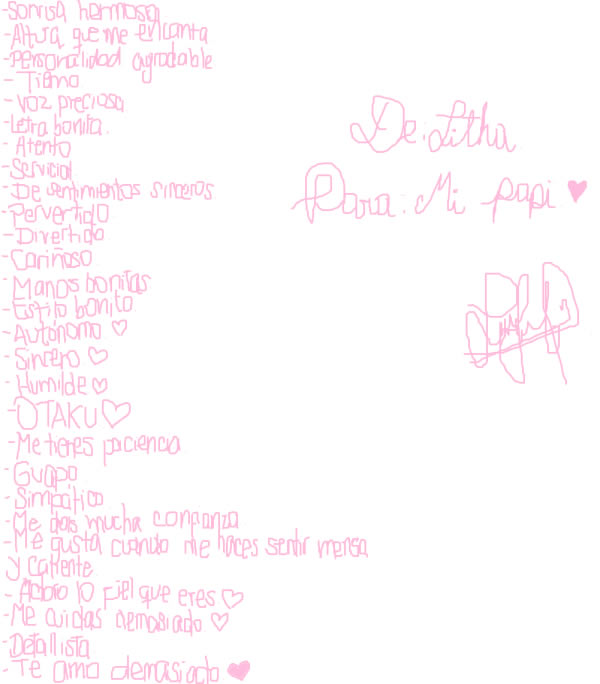 -sonrisa hermosa
-Altura que me encanta
-Personalidad agradable
- Tierno
- voz preciosa
-Letra bonita.
- Atento
-Servicial
-De sentimientos sinceros
-Pervertido
-Divertido
-Cariñoso
- Manos bonitas
-Estilo bonito
- Autónomo ♡
- Sincero ♡
- Humilde ♡
-OTAKU♡
-Me tienes paciencia
- Guapo
- Simpático
- Me das mucha confianza
-Me gusta cuando me haces sentir mensa
y caliente
- Adoro lo fiel que eres ♡
-Me cuidas demasiado ♡
-Detallista
- Te amo demasiado ♥
De: Litha
Para: Mi papi ♥